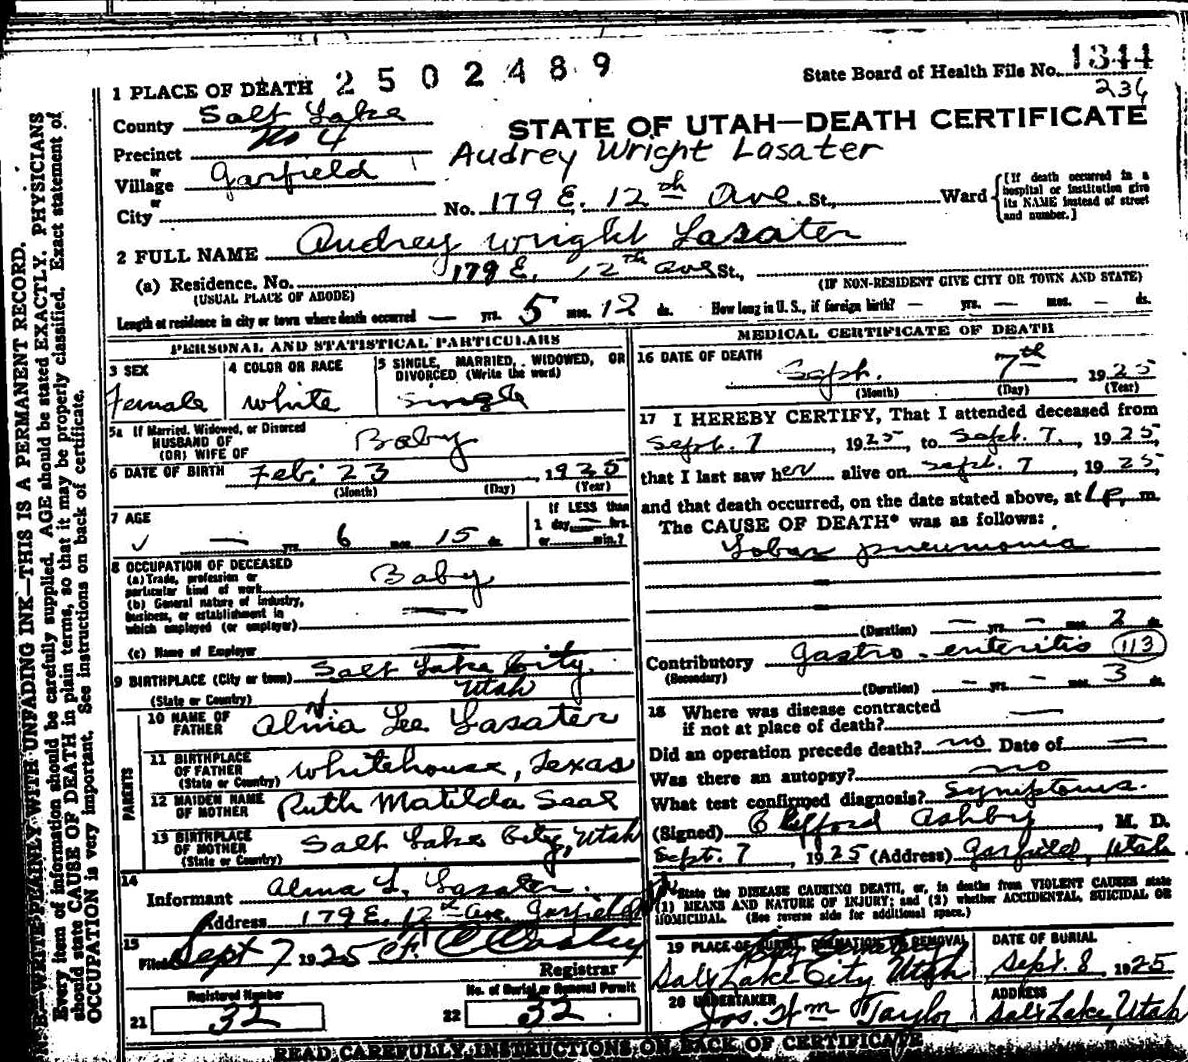 2502489
State Board of Health File No. 1344
236
1 PLACE OF DEATH
County Salt Lake
STATE OF UTAH—DEATH CERTIFICATE
Precinct No 4
Audrey Wright Lasater
or
Village Garfield
or
City
No. 179 E. 12th Ave. St., Ward
[If death occurred in a
hospital or institution give
its NAME instead of street
and number.]
2 FULL NAME Audrey Wright Lasater
(a) Residence. No. 179 E. 12th Ave St.,
(USUAL PLACE OF ABODE)
(IF NON-RESIDENT GIVE CITY OR TOWN AND STATE)
Length of residence in city or town where death occurred — yrs. 5 mos. 12 ds. How long in U. S., if foreign birth? — yrs. — mos. — ds.
PERSONAL AND STATISTICAL PARTICULARS
3 SEX
Female
4 COLOR OR RACE
White
5 SINGLE, MARRIED, WIDOWED, OR
DIVORCED (Write the word)
Single
5a If Married, Widowed, or Divorced
HUSBAND OF
(OR) WIFE OF
Baby
6 DATE OF BIRTH Feb. 23, 1925
(Month) (Day) (Year)
7 AGE
— yrs. 6 mos. 15 ds.
If LESS than
1 day, — hrs.
or min.?
8 OCCUPATION OF DECEASED
(a) Trade, profession or
particular kind of work Baby
(b) General nature of industry,
business, or establishment in
which employed (or employer) —
(c) Name of Employer —
9 BIRTHPLACE (City or town) Salt Lake City,
(State or Country) Utah
PARENTS
10 NAME OF
FATHER Alma Lee Lasater
11 BIRTHPLACE
OF FATHER
(State or Country) Whitehouse, Texas
12 MAIDEN NAME
OF MOTHER Ruth Matilda Seal
13 BIRTHPLACE
OF MOTHER
(State or Country) Salt Lake City, Utah
14
Informant Alma L. Lasater.
Address 179 E. 12th Ave. Garfield
15
Filed Sept 7 1925
Registrar
Registered Number
21 32
No. of Burial or Removal Permit
22 32
MEDICAL CERTIFICATE OF DEATH
16 DATE OF DEATH
Sept. 7th 1925
(Month) (Day) (Year)
17 I HEREBY CERTIFY, That I attended deceased from
Sept. 7 1925, to Sept. 7, 1925,
that I last saw her alive on Sept. 7, 1925,
and that death occurred, on the date stated above, at 1 p. m.
The CAUSE OF DEATH* was as follows:
Lobar pneumonia
(Duration) — yrs. — mos. 2 ds.
Contributory Gastro-enteritis 113
(Secondary)
(Duration) — yrs. — mos. 3 ds.
18 Where was disease contracted
if not at place of death? —
Did an operation precede death? no Date of —
Was there an autopsy? no
What test confirmed diagnosis? Symptoms.
(Signed) Clifford Ashby, M. D.
Sept. 7, 1925 (Address) Garfield, Utah
*State the DISEASE CAUSING DEATH, or, in deaths from VIOLENT CAUSES state
(1) MEANS AND NATURE OF INJURY; and (2) whether ACCIDENTAL, SUICIDAL OR
HOMICIDAL. (See reverse side for additional space.)
19 PLACE OF BURIAL, CREMATION OR REMOVAL
Salt Lake City Utah
DATE OF BURIAL
Sept. 8 1925
20 UNDERTAKER
Jos. Wm Taylor
ADDRESS
Salt Lake, Utah
READ CAREFULLY INSTRUCTIONS ON BACK OF CERTIFICATE
N. B.—WRITE PLAINLY WITH UNFADING INK—THIS IS A PERMANENT RECORD.
Every item of information should be carefully supplied. AGE should be stated EXACTLY. PHYSICIANS
should state CAUSE OF DEATH in plain terms, so that it may be properly classified. Exact statement of
OCCUPATION is very important. See instructions on back of certificate.